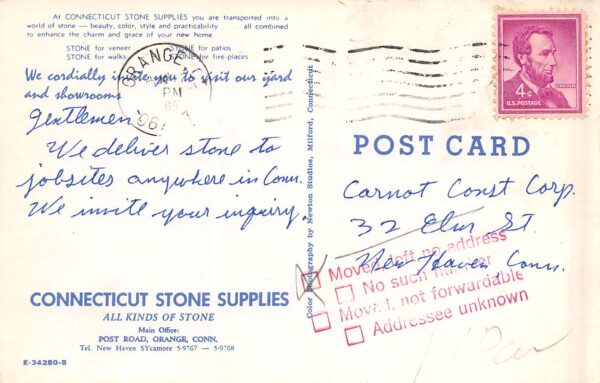 At CONNECTICUT STONE SUPPLIES you are transported into a
world of stone — beauty, color, style and practicability all combined
to enhance the charm and grace of your new home
STONE for veneer STONE for patios
STONE for walks STONE for fire-places
We cordially invite you to visit our yard
and showrooms
ORANGE
PM
196
Gentlemen,
We deliver stone to
jobsites anywhere in Conn.
We invite your inquiry.
CONNECTICUT STONE SUPPLIES
ALL KINDS OF STONE
Main Office:
POST ROAD, ORANGE, CONN.
Tel. New Haven SYcamore 5-9767 — 5-9768
E-34280-B
Color Photography by Newton Studios, Milford, Connecticut
LINCOLN
4¢
U.S. POSTAGE
POST CARD
Carnot Const Corp.
32 Elm St.
New Haven, Conn.
Moved, left no address
No such number
Moved, not forwardable
Addressee unknown